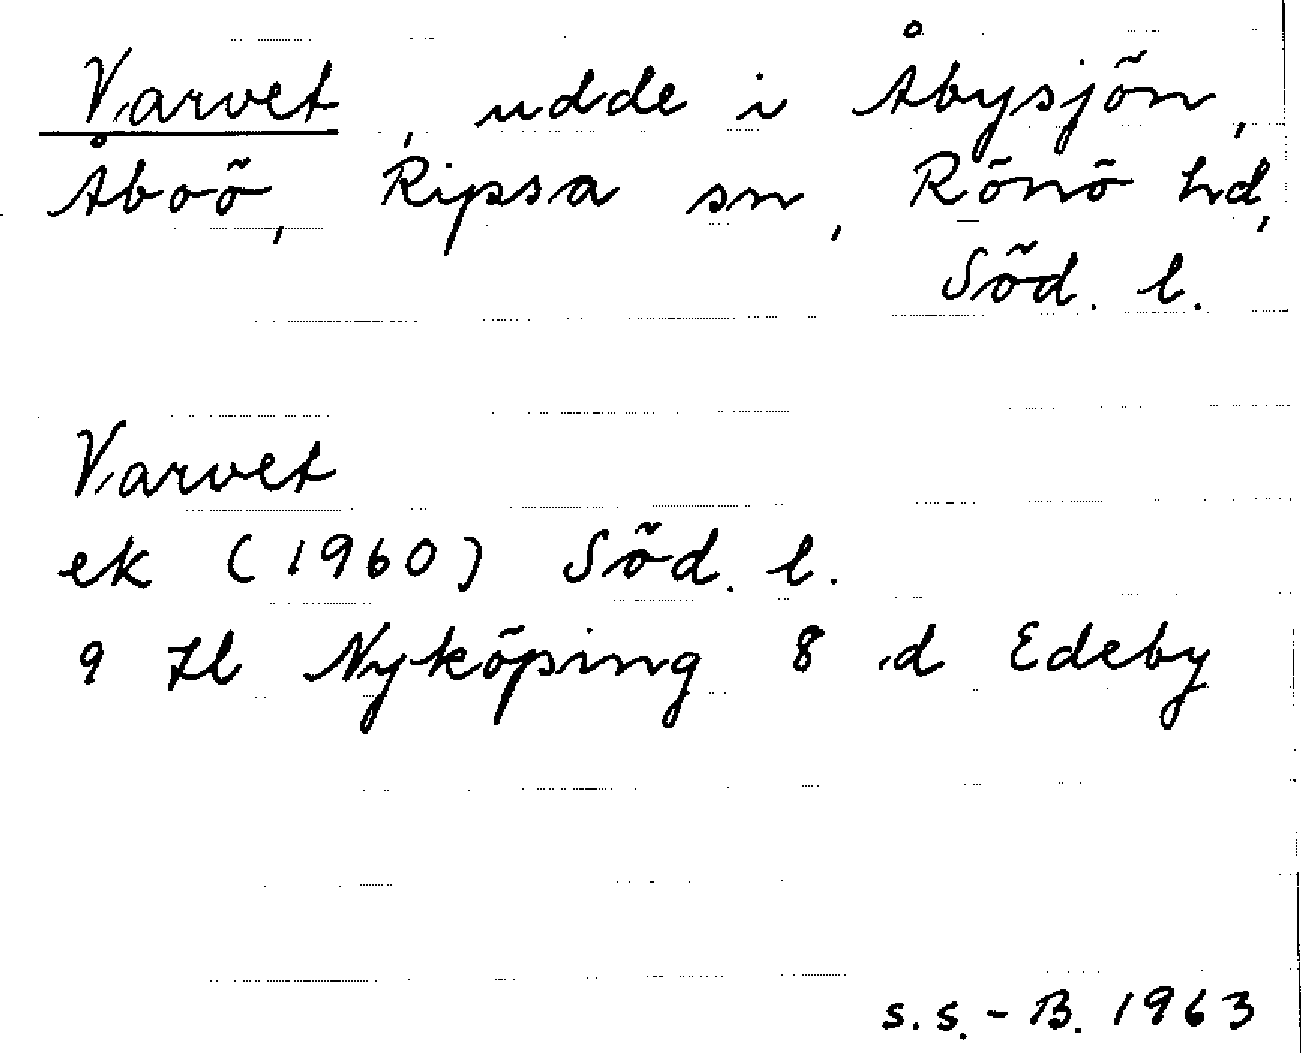 Varvet, udde i Åbysjön,
Åboö, Ripsa sn, Rönö hd,
Söd. l.
Varvet
ek (1960) Söd. l.
9 Hl Nyköping 8 d Edeby
S.S.-B. 1963